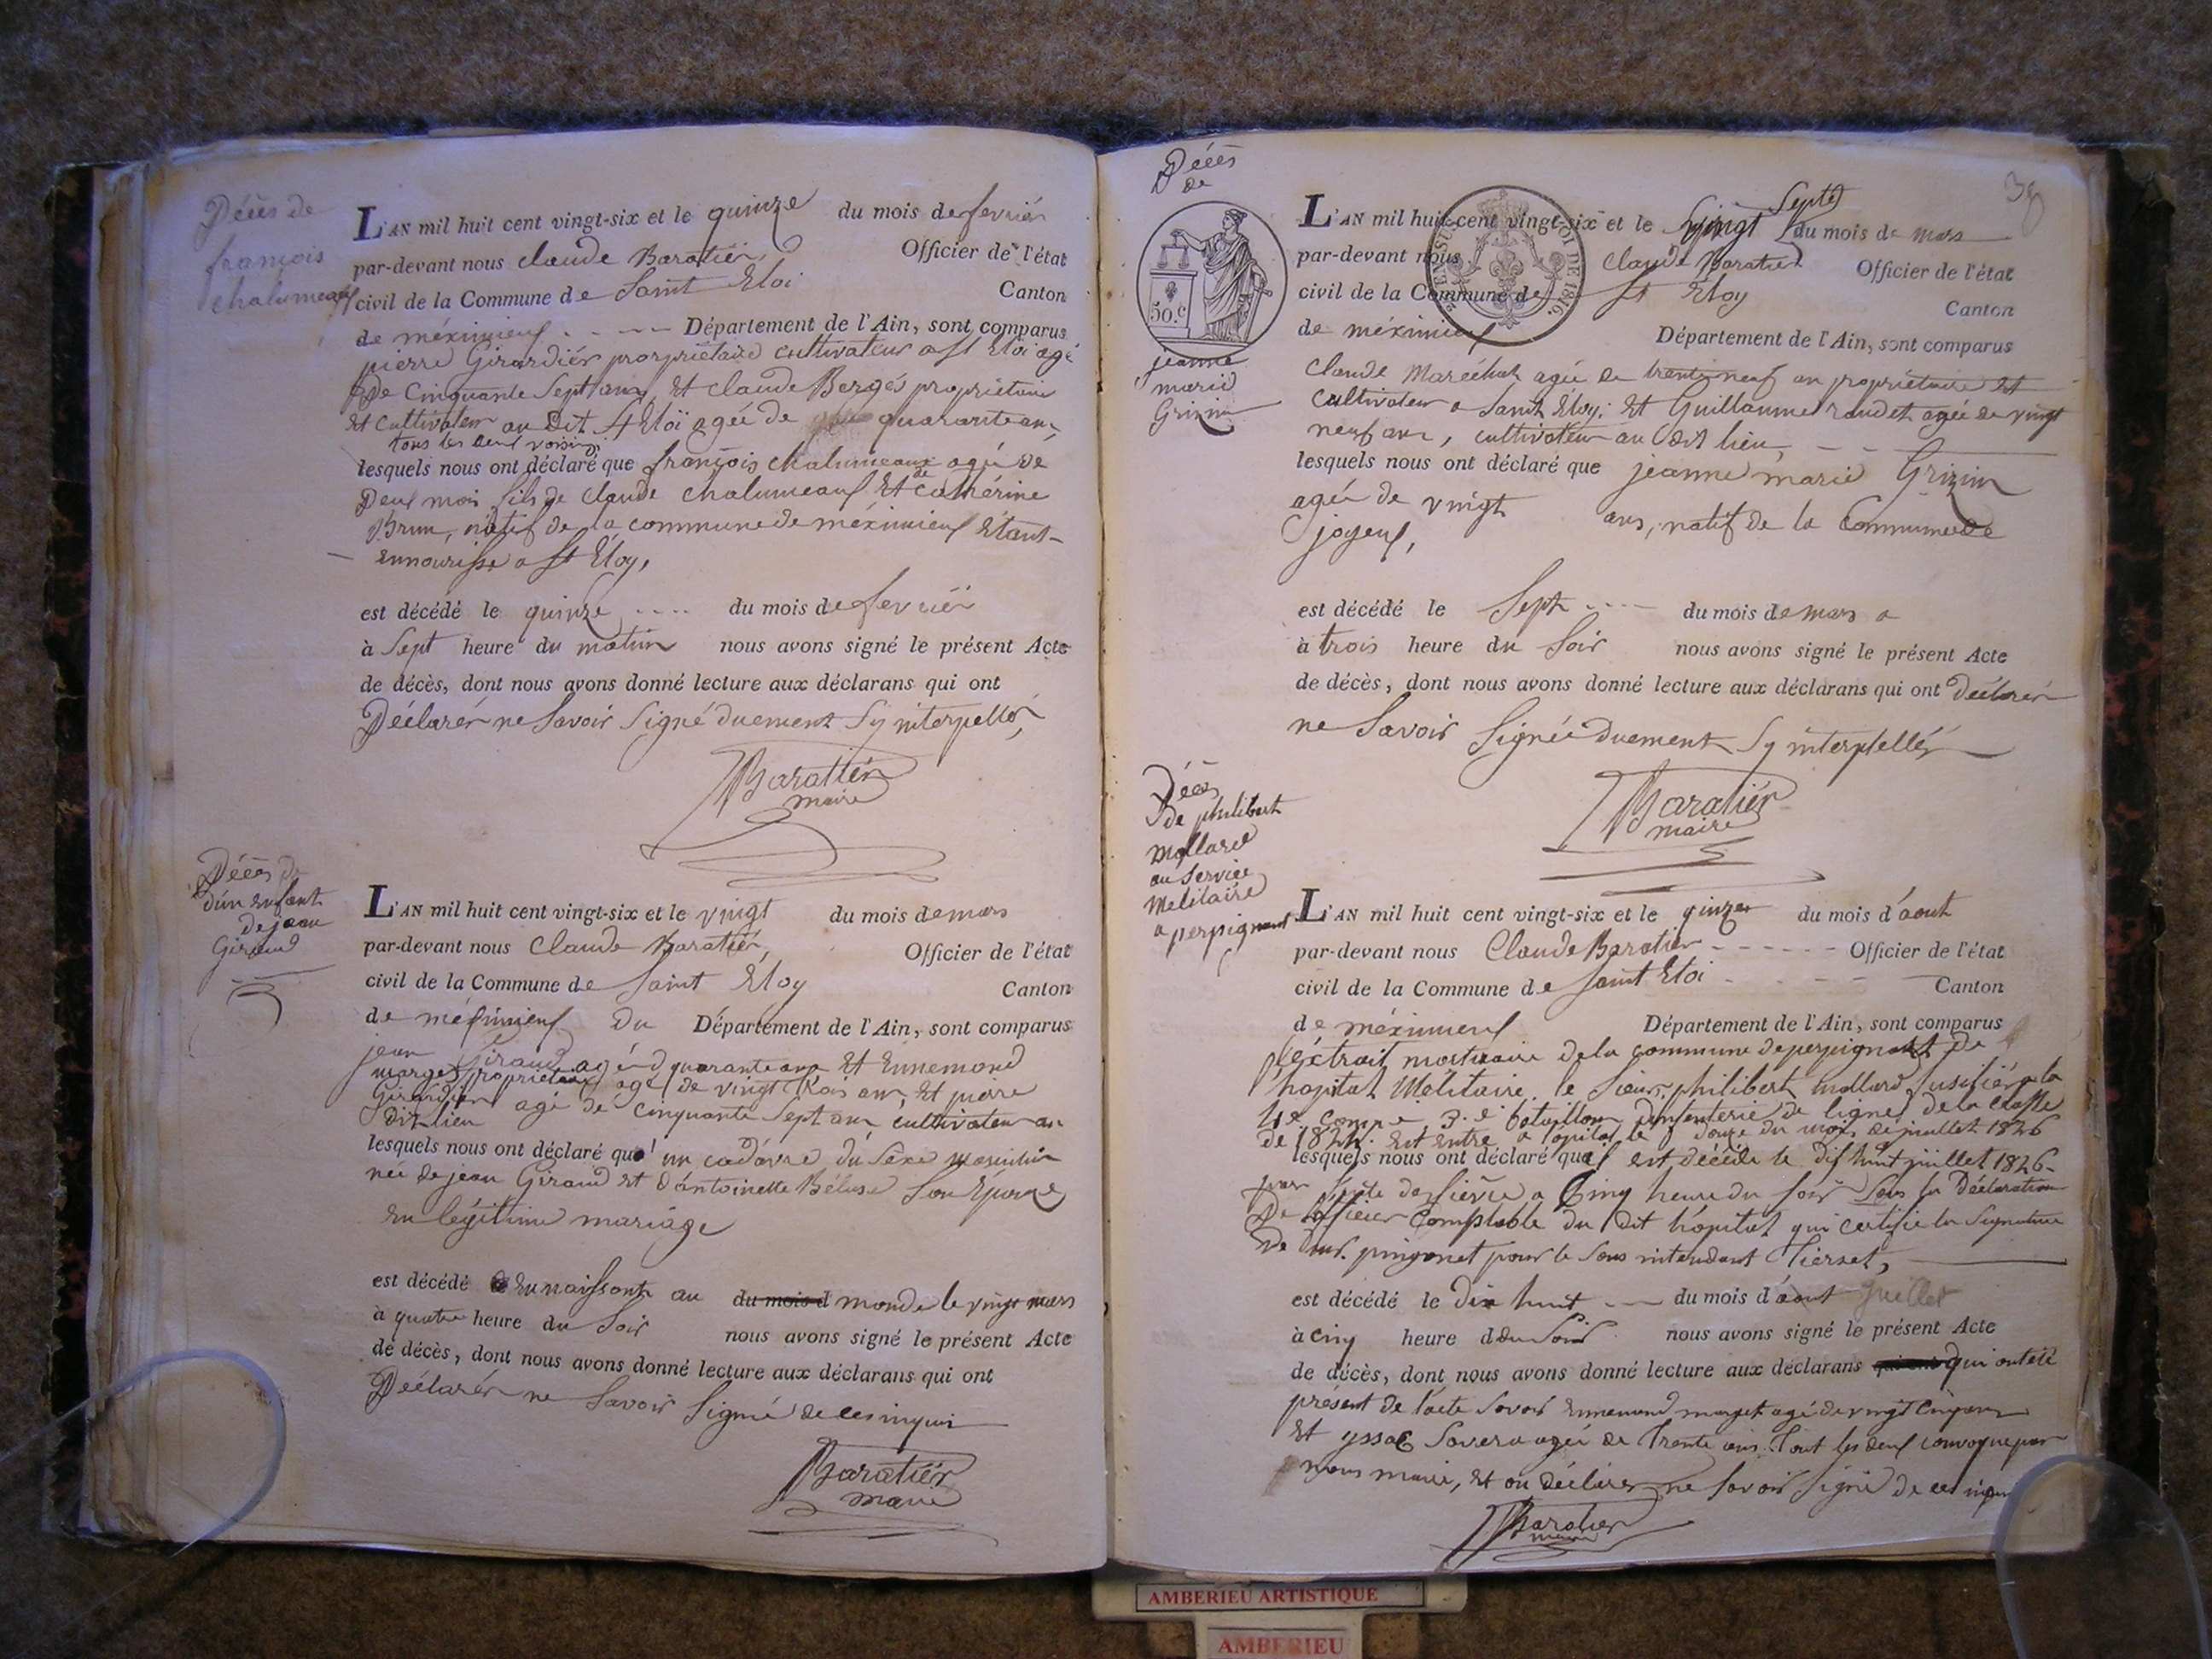 Décès de
françois
chalumeaux
L'AN mil huit cent vingt-six et le quinze du mois de fevriér
par-devant nous claude Baratiér, Officier de l'état
civil de la Commune de Saint Eloi Canton
de méximieux - - - - Département de l'Ain, sont comparus
pierre Girardiér propriétaire cultivateur a St Eloi agé
de Cinquante Sept ans, Et claude Bergés propriétaire
Et cultivateur au Dit St Eloi agée de quarante ans,
tous les deux voisins
lesquels nous ont déclaré que françois chalumeaux agée de
Deux mois fils de claude chalumeaux Et de cathérine
Brun, natif de la commune de méximieux Etant
ennourisse a St Eloy,
est décédé le quinze .... du mois de fevriér
à Sept heure du matin nous avons signé le présent Acte
de décès, dont nous avons donné lecture aux déclarans qui ont
Déclarér ne Savoir Signé duement Sy interpellér,
Baratiér
maire
Décès
d'un Enfant
de jean
Giraud
L'AN mil huit cent vingt-six et le vingt du mois de mars
par-devant nous Claude Baratiér, Officier de l'état
civil de la Commune de Saint Eloy Canton
de méximieux du Département de l'Ain, sont comparus
jean Giraud agé d quarante ans Et Ennemond
marget propriétaire agé de vingt trois ans, Et pierre
Girardier agé de cinquante Sept ans, cultivateur au
Dit lieu
lesquels nous ont déclaré que un cadavre du Séxe masculin
née de jean Giraud Et d'antoinette Béluse Son Epouse
En légitime mariage
est décédé En naissant au du mois d monde le vingt mars
à quatre heure du Soir nous avons signé le présent Acte
de décès, dont nous avons donné lecture aux déclarans qui ont
Déclarér ne Savoir Signé de ce inquis
Baratiér
maire
38
Décès
de
50.c
LOI DE 1816.
jeanne
marie
Grizin
L'AN mil huit cent vingt-six et le vingt Septe du mois de mars
par-devant nous Claude Baratier Officier de l'état
civil de la Commune de St Eloy Canton
de méximieux Département de l'Ain, sont comparus
Claude Maréchal agée de trente neuf an propriétaire Et
Cultivateur a Saint Eloy; Et Guillaume raudet agée de vingt
neuf ans, cultivateur au dit lieu,
lesquels nous ont déclaré que jeanne marie Grizin
agée de vingt ans, natif de la Commune de
joyeux,
est décédé le Sept .... du mois de mars a
à trois heure du Soir nous avons signé le présent Acte
de décès, dont nous avons donné lecture aux déclarans qui ont Déclarér
ne Savoir Signée duement Sy interpellér
Baratiér
maire
Décès
de philibert
Mollard
au Service
Melitaire
a perpignant
L'AN mil huit cent vingt-six et le quinze du mois d'aout
par-devant nous Claude Baratier - - - - - - Officier de l'état
civil de la Commune de Saint Eloi - - - - Canton
de méximieux Département de l'Ain, sont comparus
l'éxtrait mortuaire de la commune de perpignant De
l'hopital Mélitaire le Sieur philibert mollard fusiliér a la
4e compe 3.e bataillon d'infenterie de ligne de la classe
de 1824. Est Entré a l'opital le douze du mois de juillet 1826
lesquels nous ont déclaré que est décédé le dix huit juillet 1826
par Suite de fievre a Cinq heure du Soir Sous la Déclaration
De officier Comptable du dit hôpital qui certifie la Signature
De pingonet pour le Sous intendant Tierset,
est décédé le dix huit - - du mois d'aout juillet
à cinq heure d du Soir nous avons signé le présent Acte
de décès, dont nous avons donné lecture aux déclarans qui ont qui ont été
présent de l'acte Savoir Ennemond marget agé de vingt Cinq ans
Et yssac Savera agée de Trente ans. Tout les deux convoque par
nous maire, Et on déclarer ne Savoir Signé de ce inquis
Baratier
maire
AMBERIEU ARTISTIQUE
AMBERIEU